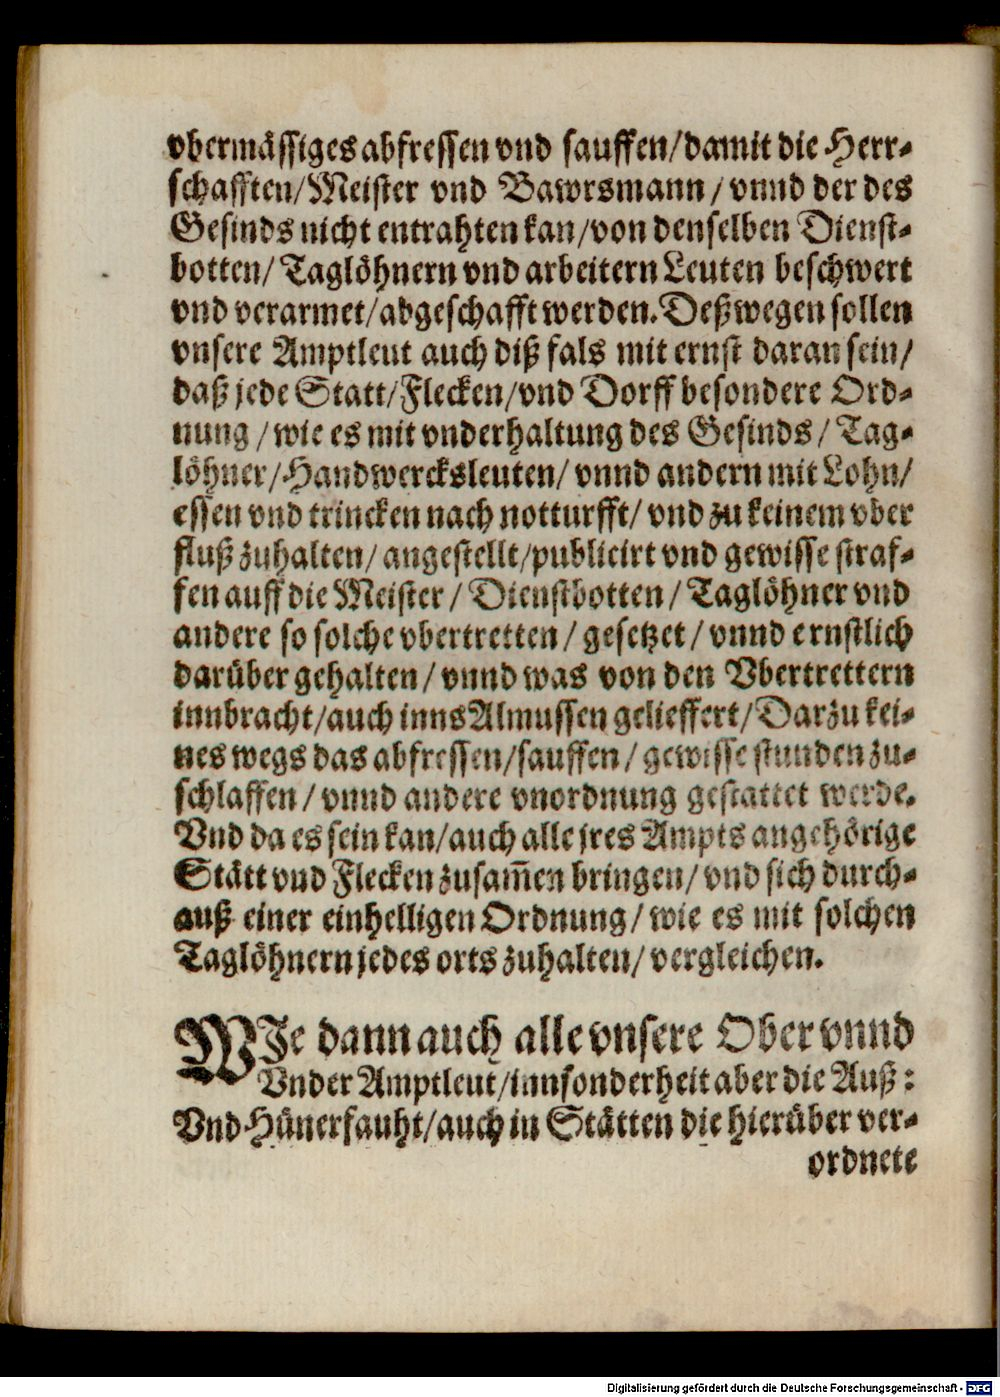 vbermässiges abfressen vnd sauffen/damit die Herr-
schafften/Meister vnd Bawrsmann/vnnd der des
Gesinds nicht entrahten kan/von denselben Dienst-
botten/Taglöhnern vnd arbeitern Leuten beschwert
vnd verarmet/abgeschafft werden. Deßwegen sollen
vnsere Amptleut auch diß fals mit ernst daran sein/
daß jede Statt/Flecken/vnd Dorff besondere Ord-
nung/wie es mit vnderhaltung des Gesinds/Tag-
löhner/Handwercksleuten/vnnd andern mit Lohn/
essen vnd trincken nach notturfft/vnd zu keinem vber
fluß zuhalten/angestellt/publicirt vnd gewisse straf-
fen auff die Meister/Dienstbotten/Taglöhner vnd
andere so solche vbertretten/gesetzet/vnnd ernstlich
darüber gehalten/vnnd was von den Vbertrettern
innbracht/auch inns Almussen gelieffert/Darzu kei-
nes wegs das abfressen/sauffen/gewisse stunden zu-
schlaffen/vnnd andere vnordnung gestattet werde.
Vnd da es sein kan/auch alle jres Ampts angehörige
Stätt vnd Flecken zusam̄en bringen/vnd sich durch-
auß einer einhelligen Ordnung/wie es mit solchen
Taglöhnern jedes orts zuhalten/vergleichen.
WIe dann auch alle vnsere Ober vnnd
Vnder Amptleut/innsonderheit aber die Auß:
Vnd Hünerfauht/auch in Stätten die hierüber ver-
ordnete
Digitalisierung gefördert durch die Deutsche Forschungsgemeinschaft - DFG